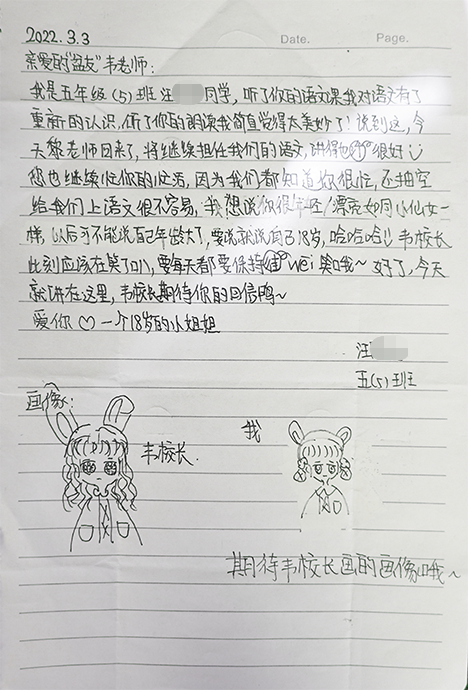 2022.3.3
Date.
Page.
亲爱的"盆友"韦老师:
我是五年级(5)班汪 同学,听了你的语文课我对语文有了
重新的认识,听了你的朗读我简直觉得太美妙了!说到这,今
天黎老师回来了,将继续担任我们的语文,讲得也很好
您也继续忙你的忙活,因为我们都知道你很忙,还抽空
给我们上语文很不容易,我想说你很年轻!漂亮如同小仙女一
样,以后可不能说自己年龄大了,要说就说自己18岁,哈哈哈!韦校长
此刻应该在笑了叭,要每天都要保持 wei 笑哦~ 好了,今天
就讲在这里,韦校长期待你的回信鸭~
爱你♡一个18岁的小姐姐
汪
五(5)班
画像:
韦校长.
我
期待韦校长画的画像哦~